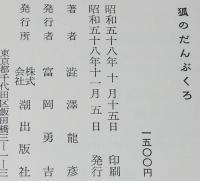 狐のだんぶくろ
一五〇〇円
昭和五十八年十月十五日 印刷
昭和五十八年十一月五日 発行
著者 澁澤龍彦
発行者 富岡勇吉
発行所 株式会社 潮出版社
東京都千代田区飯田橋三―一―三